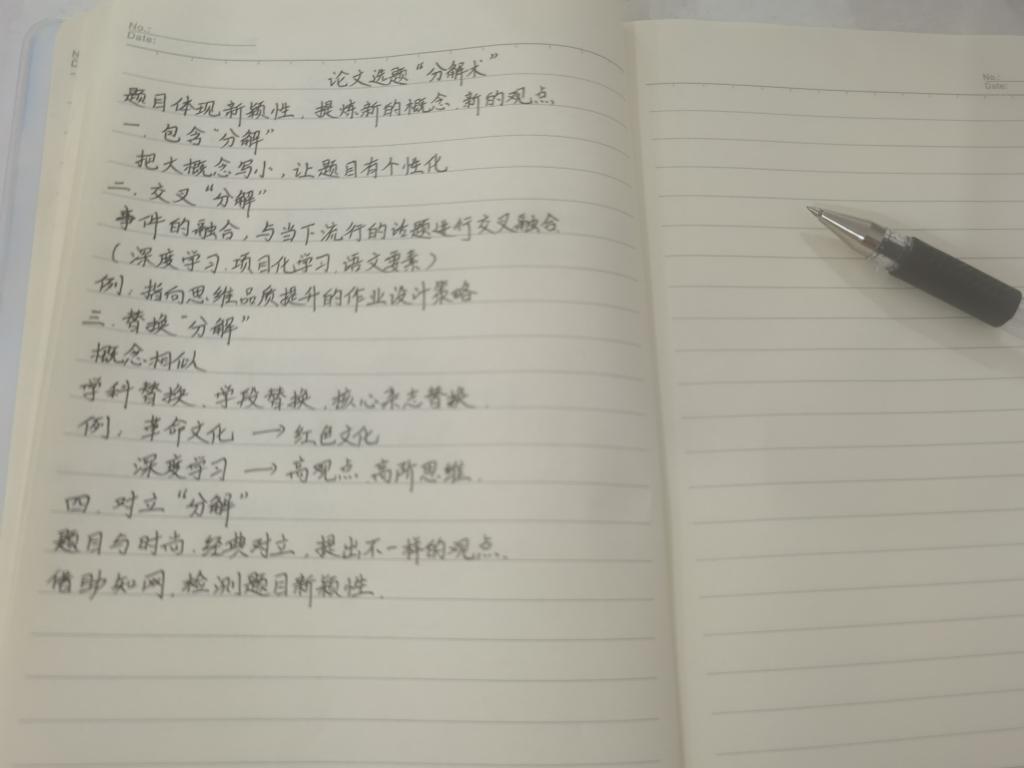 No.:
Date:
论文选题“分解术”
题目体现新颖性,提炼新的概念.新的观点
一.包含“分解”
把大概念写小,让题目有个性化
二.交叉“分解”
事件的融合,与当下流行的话题进行交叉融合
(深度学习.项目化学习.语文要素)
例,指向思维品质提升的作业设计策略
三.替换“分解”
概念相似
学科替换.学段替换.核心杂志替换.
例,革命文化 → 红色文化
深度学习 → 高观点.高阶思维.
四.对立“分解”
题目与时尚.经典对立,提出不一样的观点.
借助知网.检测题目新颖性.
No.:
Date: